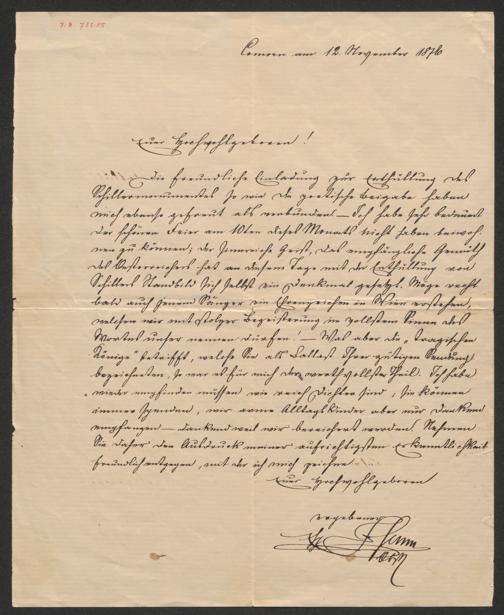 Comorn am 12. November 1876
Euer Hochwohlgeboren!
Die freundliche Einladung zur Enthüllung des
Schillermonumentes so wie die poetische Beigabe haben
mich ebenso gefreut als verbunden – Ich habe sehr bedauert
der schönen Feier am 10ten dieses Monats nicht haben beiwoh-
nen zu können; der Geist, das empfängliche Gemüth
des Oesterreichers hat an diesem Tage mit der Enthüllung von
Schillers Standbild sich selbst ein Denkmal gesetzt. Möge recht
bald auch jenem Sänger ein Ehrenzeichen in Wien erstehen,
welchen wir mit stolzer Begeisterung im vollsten Sinne des
Wortes unser nennen dürfen. – Was aber die „tragischen
Könige" betrifft, welche Sie als Ballast Ihrer gütigen Sendung
bezeichneten, so war es für mich der werthvollste Theil. Ich habe
wieder empfinden müssen wie reich Dichter sind, Sie können
immer spenden, wir arme Alltagskinder aber nur dankend
empfangen – dankend weil wir bereichert werden. Nehmen
Sie daher den Ausdruck meiner aufrichtigsten Erkenntlichkeit
freundlich entgegen, mit der ich mich zeichne
Euer Hochwohlgeboren
ergebener